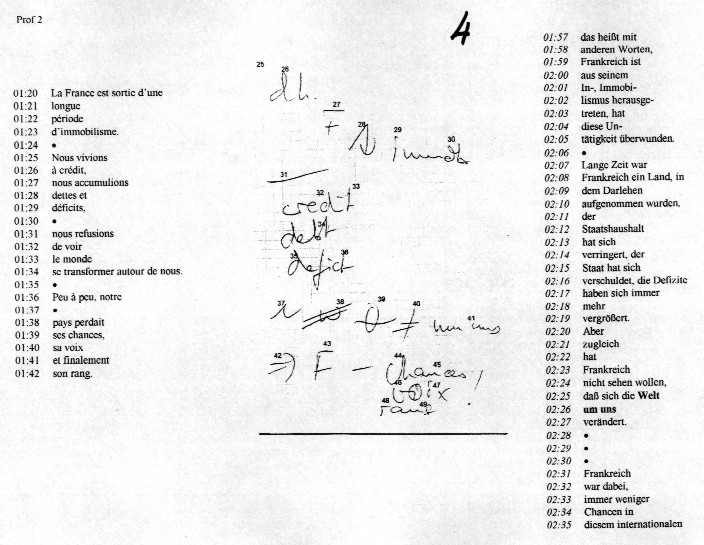 Prof 2
4
01:20 La France est sortie d'une
01:21 longue
01:22 période
01:23 d'immobilisme.
01:24 •
01:25 Nous vivions
01:26 à crédit,
01:27 nous accumulions
01:28 dettes et
01:29 déficits,
01:30 •
01:31 nous refusions
01:32 de voir
01:33 le monde
01:34 se transformer autour de nous.
01:35 •
01:36 Peu à peu, notre
01:37 •
01:38 pays perdait
01:39 ses chances,
01:40 sa voix
01:41 et finalement
01:42 son rang.
25 26
dh.
27
28 29 30
31
32 33
credit
34
debt
35 36
deficit
37 38 39 40 41
42 43 44 45
⇒ F – Chances!
46 47
voix
48 49
rang
01:57 das heißt mit
01:58 anderen Worten,
01:59 Frankreich ist
02:00 aus seinem
02:01 In-, Immobi-
02:02 lismus herausge-
02:03 treten, hat
02:04 diese Un-
02:05 tätigkeit überwunden.
02:06 •
02:07 Lange Zeit war
02:08 Frankreich ein Land, in
02:09 dem Darlehen
02:10 aufgenommen wurden,
02:11 der
02:12 Staatshaushalt
02:13 hat sich
02:14 verringert, der
02:15 Staat hat sich
02:16 verschuldet, die Defizite
02:17 haben sich immer
02:18 mehr
02:19 vergrößert.
02:20 Aber
02:21 zugleich
02:22 hat
02:23 Frankreich
02:24 nicht sehen wollen,
02:25 daß sich die Welt
02:26 um uns
02:27 verändert.
02:28 •
02:29 •
02:30 •
02:31 Frankreich
02:32 war dabei,
02:33 immer weniger
02:34 Chancen in
02:35 diesem internationalen